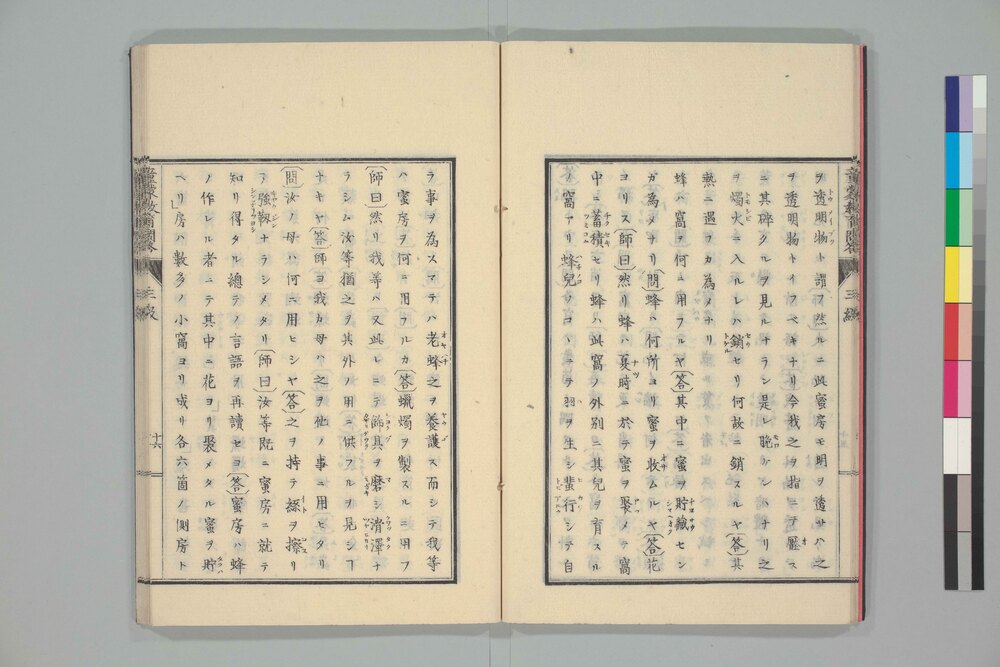 ヲ透明物ト謂フ(然)ルニ此蜜房モ明ヲ透サハ之
ヲ透明物トイフベキナリ今我之ヲ指ニテ壓ス
ニ其碎クルヲ見ルナラン是レ脆ケレハナリ之
ヲ燭火ニ入ルレハ銷セリ何故ニ銷スルヤ(答)其
熱ニ遇フカ為メナリ
蜂ハ窩ヲ何ニ用フルヤ(答)其中ニ蜜ヲ貯藏セン
ガ為メナリ(問)蜂ハ何所ヨリ蜜ヲ收ムルヤ(答)花
ヨリス(師曰)然リ蜂ハ夏時ニ於テ蜜ヲ聚メテ窩
中ニ蓄積セリ蜂ハ此窩ノ外別ニ其兒ヲ育スル
ノ窩アリ蜂兒ノコヽニテ羽ヲ生シ蜚行シテ自
ラ事ヲ為スマテハ老蜂之ヲ養護ス而シテ我等
ハ蜜房ヲ何ニ用フルカ(答)蠟燭ヲ製スルニ用フ
(師曰)然リ我等ハ又此レニテ師具ヲ磨シ滑澤ナ
ラシム汝等猶之ヲ其外ノ用ニ供フルヲ見シヿ
ナキヤ(答)師ヨ我カ母ハ之ヲ他ノ事ニ用ヒタリ
(問)汝ノ母ハ何ニ用ヒシヤ(答)之ヲ持テ綵ヲ擦リ
テ強靱ナラシメタリ(師曰)汝等既ニ蜜房ニ就テ
知リ得タル總テノ言語ヲ再讀セヨ(答)蜜房ハ蜂
ノ作レル者ニテ其中ニ花ヨリ聚メタル蜜ヲ貯
ヘリ」房ハ數多ノ小窩ヨリ成リ各六箇ノ側房ト
三級
十六